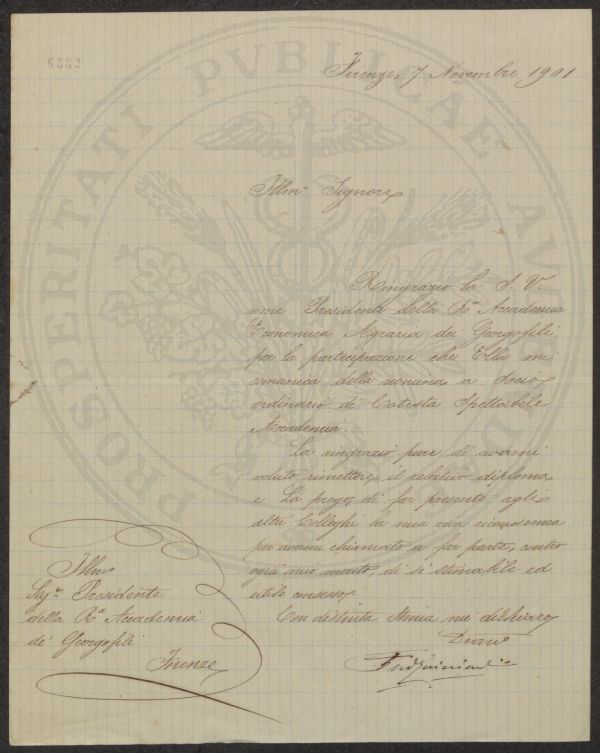 6582
PROSPERITATI PVBLICAE AV
Firenze, 7 Novembre 1901
Illmo. Signore
Ringrazio la S. V.
come Presidente della Ra. Accademia
Economica Agraria dei Georgofili
per la partecipazione che Ella mi
comunica della nomina a Socio
ordinario di Cotesta Spettabile
Accademia.
La ringrazio pure di avermi
voluto rimettere il relativo diploma
e La prego di far presente agli
altri Colleghi la mia viva riconoscenza
per avermi chiamato a far parte, contro
ogni mio merito, di sì stimabile ed
utile consesso.
Con distinta stima mi dichiaro
Devmo
Illmo
Sigr. Presidente
della Ra. Accademia
de' Georgofili
Firenze